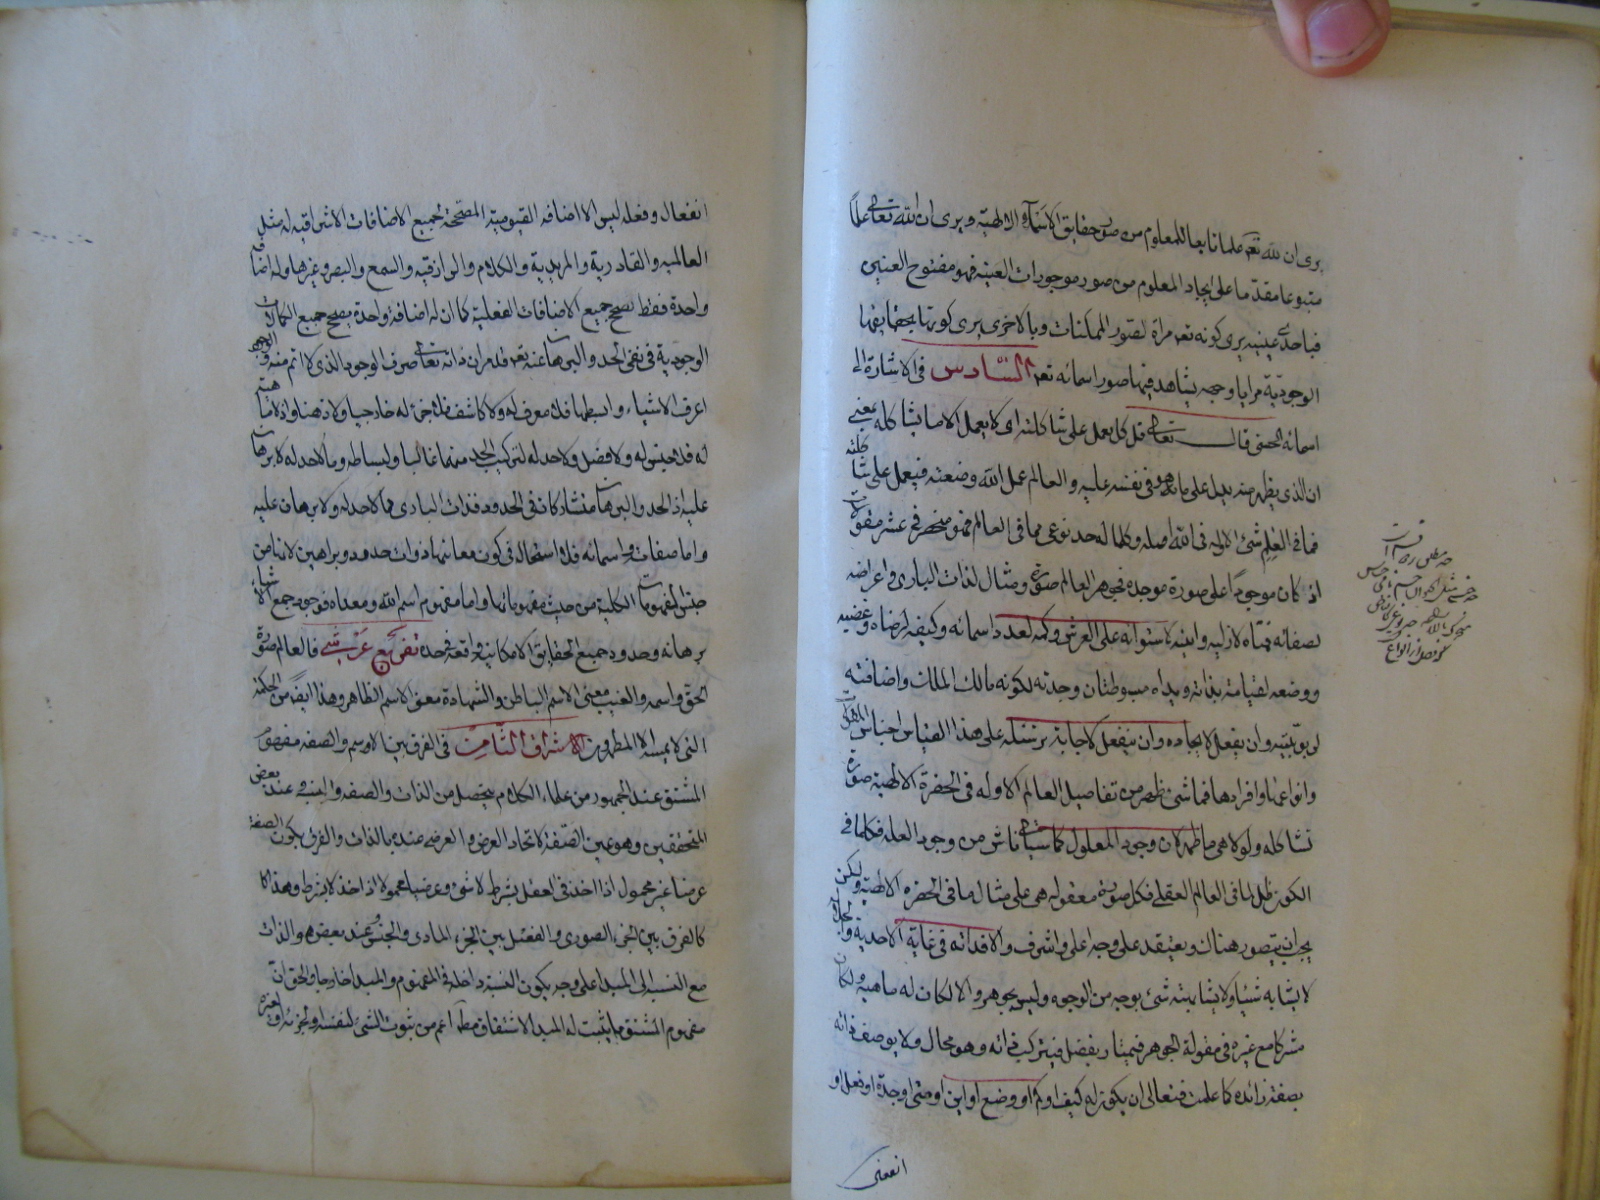 يرى ان لله تعه علما تابعا للمعلوم من صور حقايق الاسمآء الالهية ويرى ان الله تعالى علما
متبوعا مقدما على ايجاد المعلوم من صور موجودات العينية فهو مفتوح العينين
فباحدى عينيه يرى كونه تعه مرآة لصور الممكنات وبالاخرى يرى كونها بحقايقها
الوجودية مرايا وجهه يشاهد فيها صور اسمائه تعه السّادس فى الاشارة الى
اسمائه الحسنى قال تعالى قل كل يعمل على شاكلته اى لا يعمل الا ما يشاكله بمعنى
ان الذى يظهر منه يدل على ما هو فى نفسه عليه والعالم عمل الله وصنعته فيعمل على شاكلته
فما فى العالم شئ الا وله فى الله اصله وكلما له حد نوعى مما فى العالم فهو منحصر فى عشر مقولات
اذ كان موجودا على صورة موجده فجوهر العالم صورة ومثال لذات البارى واعراضه
لصفاته فمتاه لازليه واينه لاستوائه على العرش وكمه لعدد اسمائه وكيفه لرضاه وغضبه
ووضعه لقيامته بذاته ويداه مبسوطتان وجدته لكونه مالك الملك واضافته
لربوبيته وان يفعل لايجاده وان ينفعل لاجابة من سئله على هذا القياس اجناس المقولات
وانواعها وافرادها فما شئ ظهر من تفاصيل العالم الا وله فى الحضرة الالهية صورة
تشاكله ولولا هى ما ظهر لان وجود المعلول كما سياتى ناش من وجود العله فكلما فى
الكون ظل لما فى العالم العقلى وكل صورة معقوله هى على مثال ما فى الحضره الالهية ولكن
يجب ان يتصور هناك ويعتقد على وجه اعلى واشرف والا فذاته فى غاية الاحدية والجلالة
لا يشابه شيئا ولا يشابهه شئ بوجه من الوجوه وليس بجوهر والا لكان له ماهية ولكان
مشتركا مع غيره فى مقولة الجوهر فيمتاز بفصل فيتركب ذاته وهو محال ولا يوصف ذاته
بصفة زائدة كما علمت فتعالى ان يكون له كيف او كم او وضع او اين او متى او جدة او فعل او
انفعال
انفعال وفعله ليس الا اضافه القيوميه المصححة لجميع الاضافات الاشراقيه له مثل
العالميه والقادرية والمريدية والكلام والرازقيه والسمع والبصر وغيرها وله اضافة
واحدة فقط تصحح جميع الاضافات الفعلية كما ان له اضافة واحدة يصحح جميع الكمالات
الوجودية فى نفى الحد والبرهان عنه تعه قد مر ان ذاته تعالى صرف الوجود الذى لا اتم منه والوجود
اعرف الاشياء وابسطها فلا معرف له ولا كاشف فلا جزء له خارجيا ولا ذهنا واذ لا ماهية
له فلا جنس له ولا فصل ولا حد له لتركب الحد منهما غالبا ولبساطه وما لا حد له لا برهان
عليه اذ الحد والبرهان متشاركان فى الحدود فذات البارى مما لا حد له ولا برهان عليه
واما صفاته واسمائه فلا استحالة فى كون معانيها ذوات حدود وبراهين لانها من
حيث المفهومات الكلية من حيث مفهوماتها واما مفهوم اسم الله ومعناه فوجود جميع الاشياء
برهانه وحدود جميع الحقايق الامكانية واقعة فى حده تفريع عرشى فالعالم صورة
الحق واسمه والغيب معنى الاسم الباطن والشهادة معنى الاسم الظاهر وهذا ايضا من الحكمة
التى لا يمسه الا المطهرون الاشراق الثامن فى الفرق بين الاسم والصفه مفهوم
المشتق عند الجمهور من علماء الكلام متحصل من الذات والصفه والنسبه وعند بعض
المحققين وهو عين الصفة لاتحاد العرض والعرضى عنده بالذات والفرق بكون الصفة
عرضا غير محمول اذا اخذ فى العقل بشرط لا شئ وعرضيا محمولا اذا اخذ لا بشرط وهذا
كالفرق بين الجزء الصورى والفصل بين الجزء المادى والجنس وعند بعض هو الذات
مع النسبة الى المبدا على وجه يكون النسبة داخلة فى المفهوم والمبدا خارجا والحق ان
مفهوم المشتق ما يثبت له المبدا الاشتقاق مطلقا اعم من ثبوت الشئ لنفسه او لجزئه او لغيره